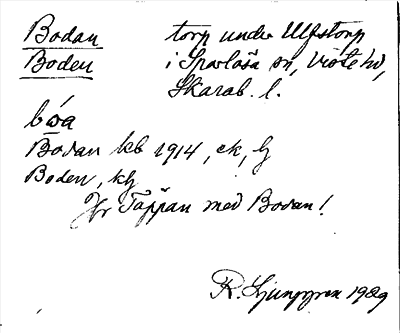 Bodan torp under Ulfstorp
Boden i Sparlösa sn, Viste hd,
Skarab. l.
bωa
Bodan kb 1914, ek, lj
Boden, kg
Jfr Täppan med Bodan!
R. Ljunggren 1929